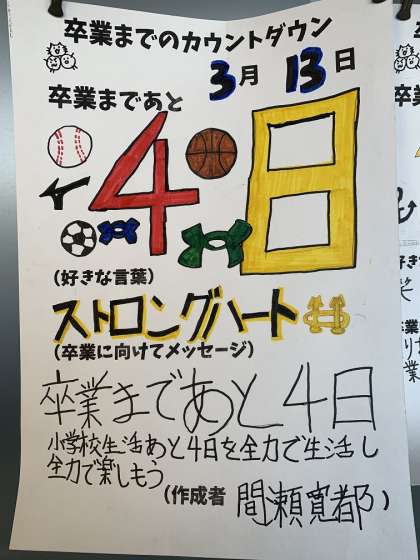 卒業までのカウントダウン
3月 13日
卒業まであと
4日
(好きな言葉)
ストロングハート
(卒業に向けてメッセージ)
卒業まであと4日
小学校生活あと4日を全力で生活し
全力で楽しもう
(作成者 間瀬寛都)